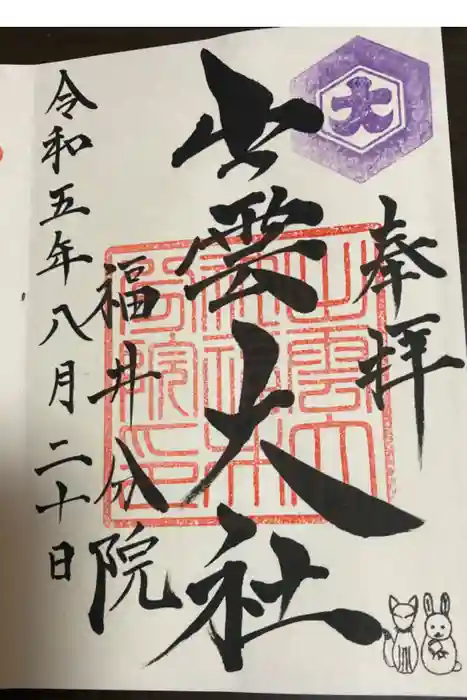 奉拝
大
出雲大社
福井分院
令和五年八月二十日
出雲大
社福井
分院印